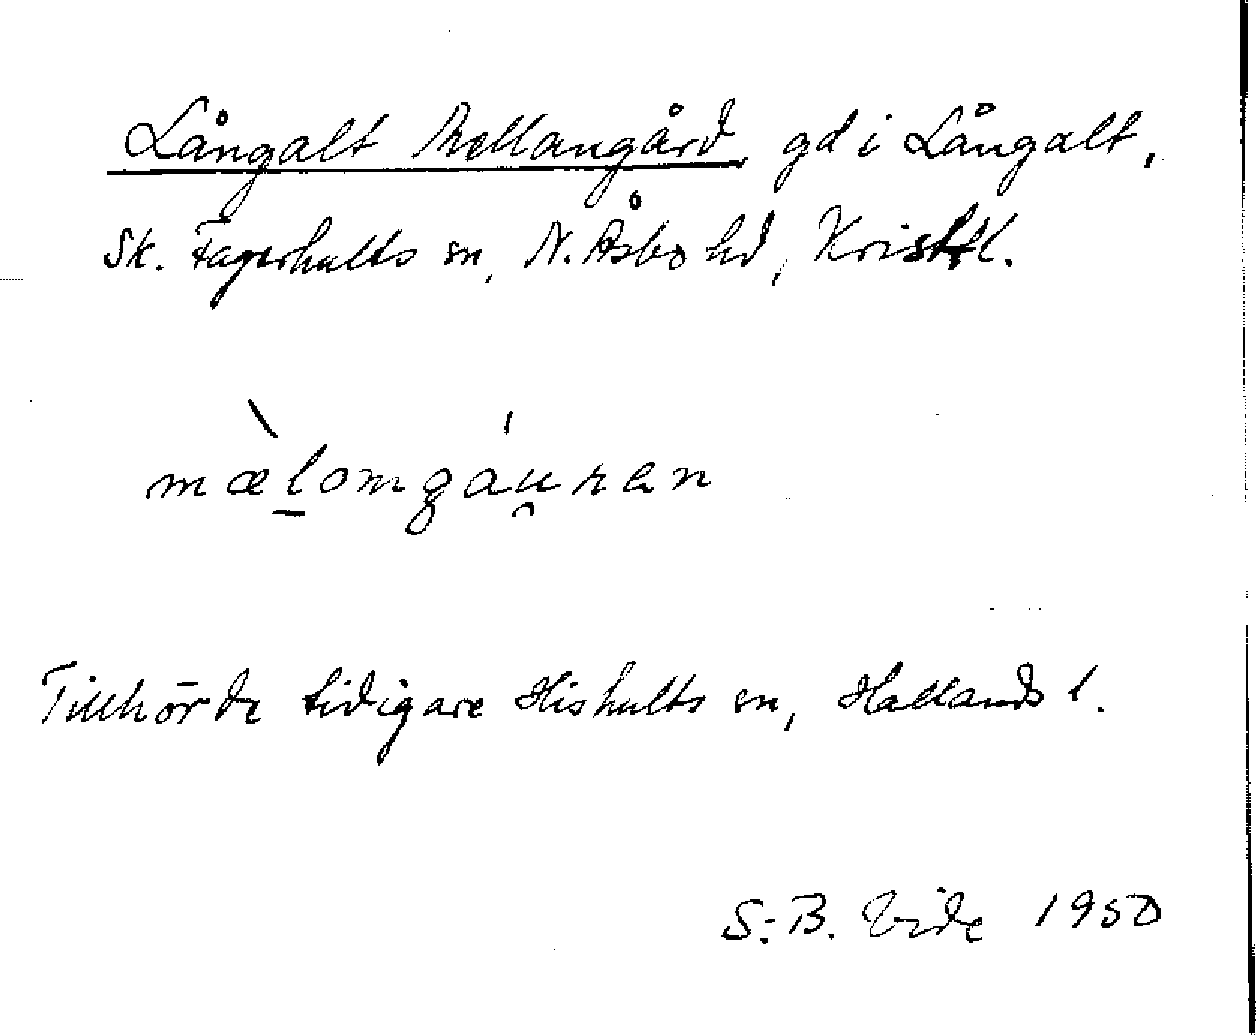 Långalt Mellangård, gd i Långalt,
Sk. Fagerhults sn, N. Åsbo hd, Kristl.
mæ̀lomgáu̯ran
Tillhörde tidigare Hishults sn, Hallands l.
S:B. Vide 1950